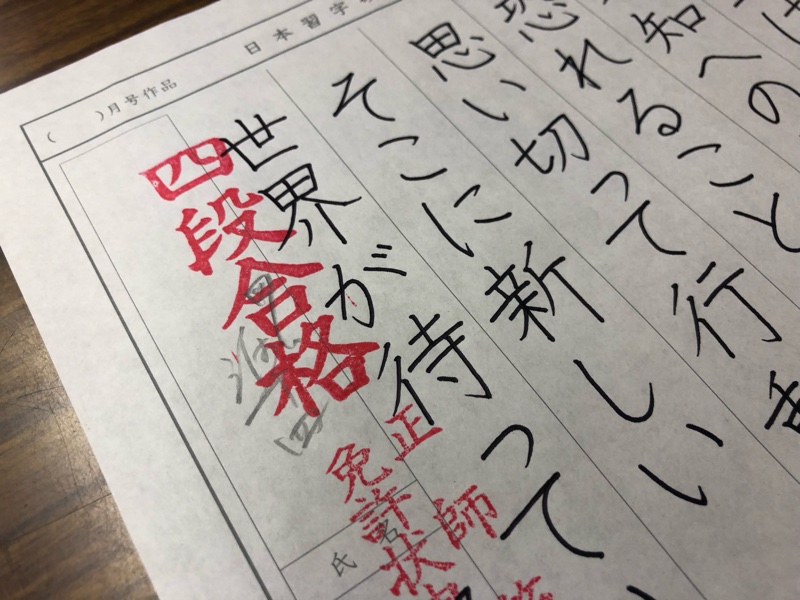 日本習字
( )月号作品
は
知への
恐れること
思い切って行
そこに新しい
世界が待って
四段合格
正師
免許状
氏名